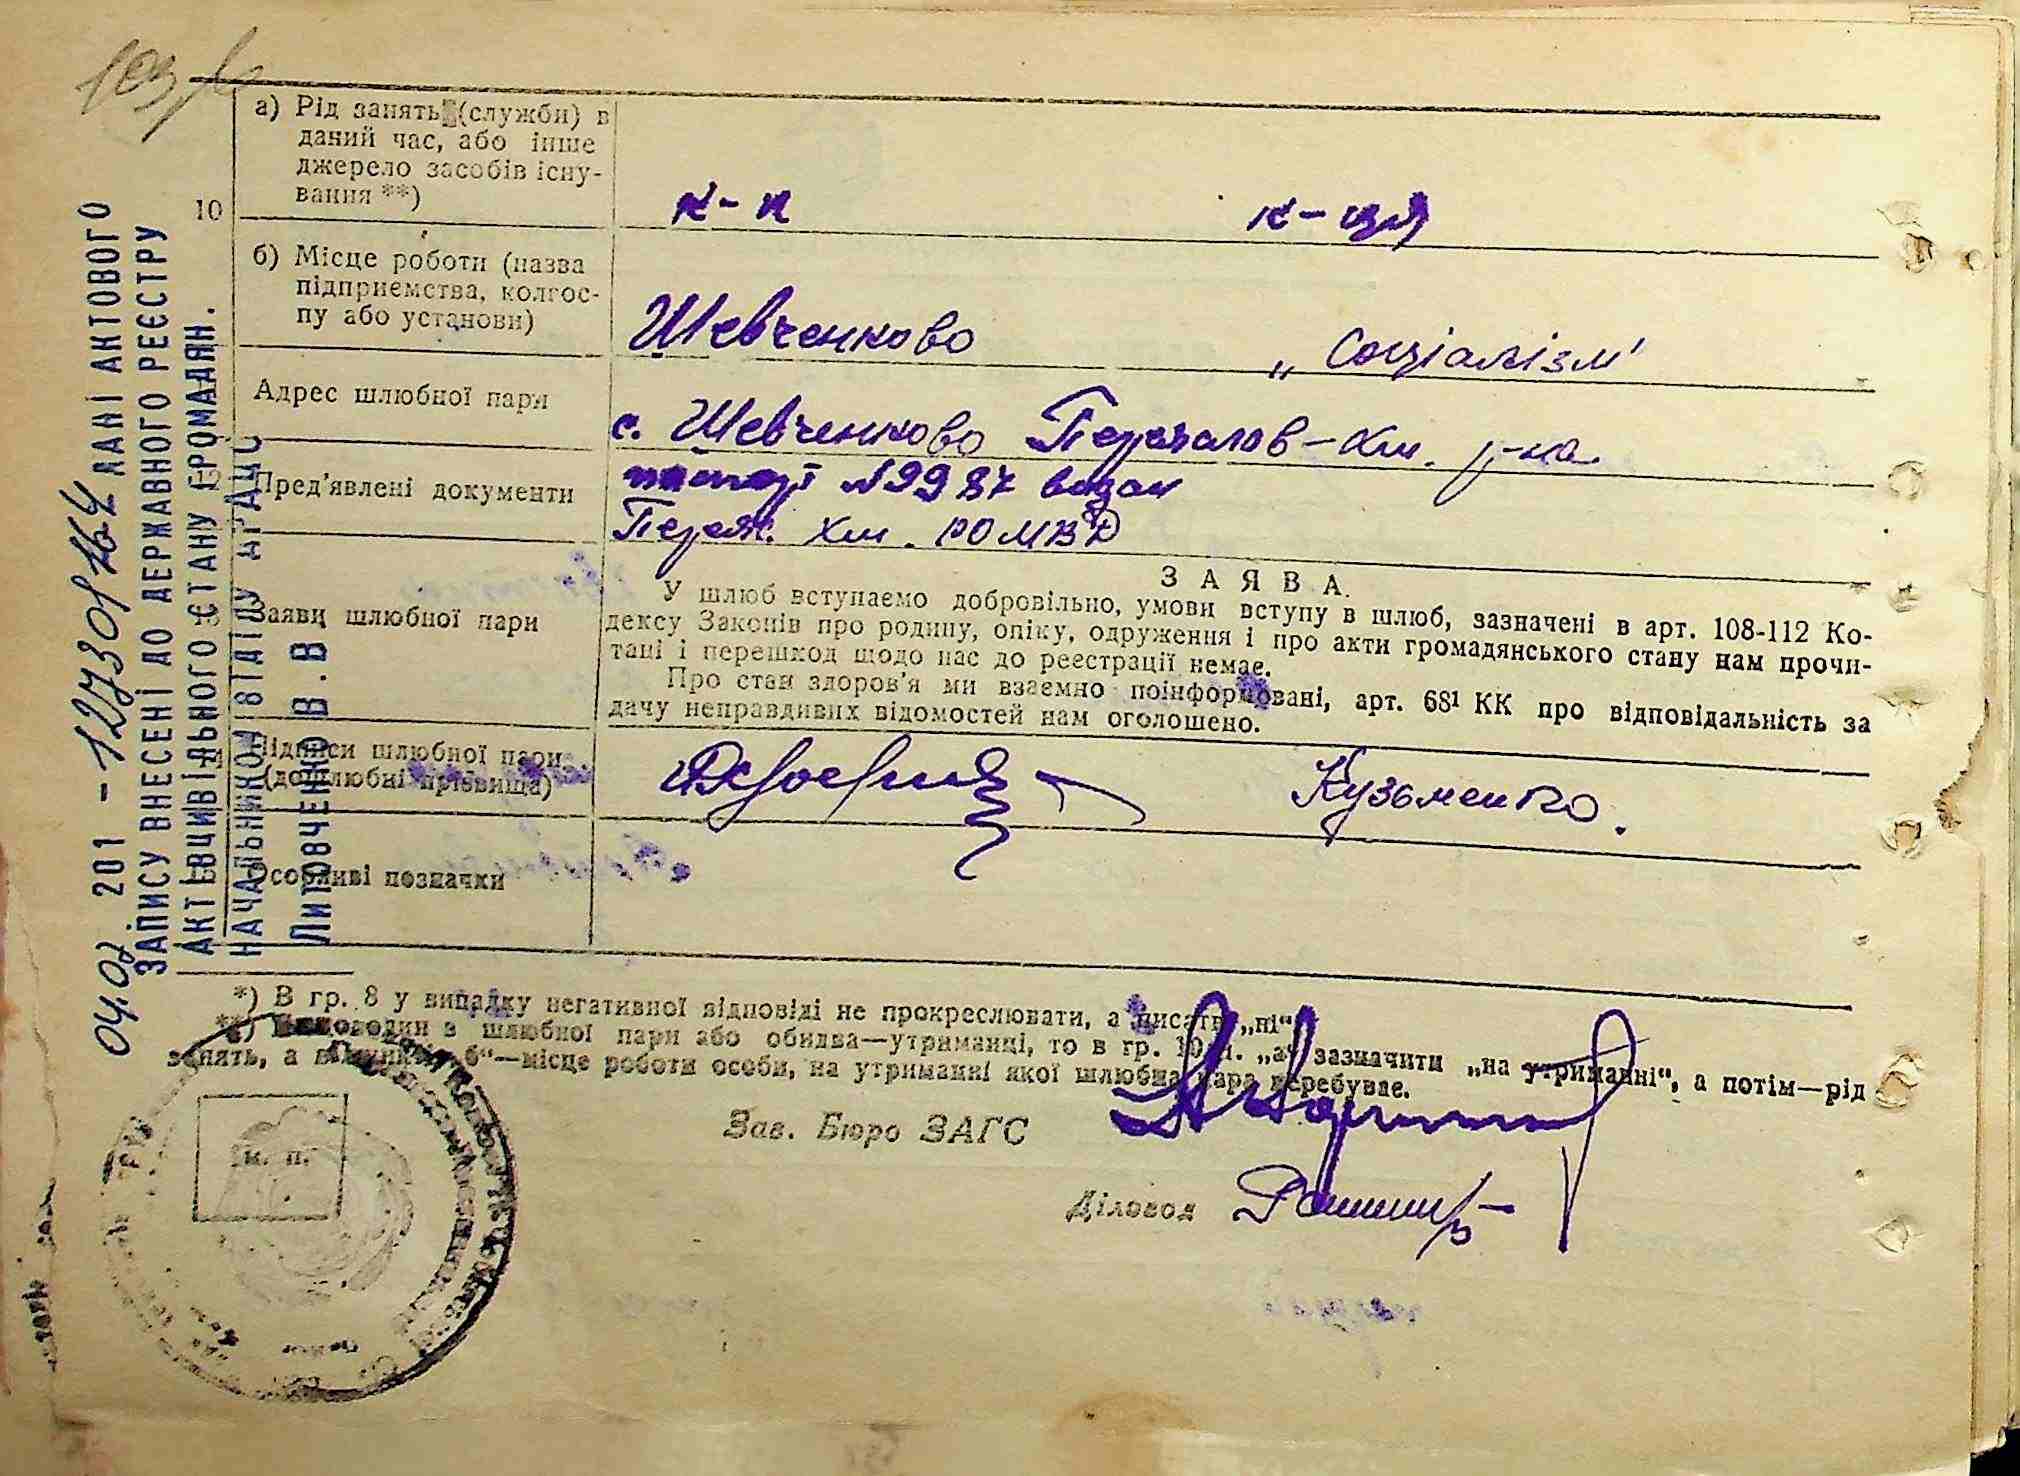 103
10
а) Рід занять (служби) в
даний час, або інше
джерело засобів існу-
вання **)
к-к
к-ця
б) Місце роботи (назва
підприємства, колгос-
пу або установи)
Шевченково
„Соціалізм"
Адрес шлюбної пари
с. Шевченково Переяслов-Хм. р-на.
12
Пред'явлені документи
паспорт №9987 видан
Переяс. Хм. РОМВД
Заяви шлюбної пари
ЗАЯВА.
У шлюб вступаємо добровільно, умови вступу в шлюб, зазначені в арт. 108-112 Ко-
дексу Законів про родину, опіку, одруження і про акти громадянського стану нам прочи-
тані і перешкод щодо нас до реєстрації немає.
Про стан здоров'я ми взаємно поінформовані, арт. 68¹ КК про відповідальність за
дачу неправдивих відомостей нам оголошено.
Підписи шлюбної пари
(дошлюбні прізвища)
Кузьменко.
Особливі позначки
*) В гр. 8 у випадку негативної відповіді не прокреслювати, а писати „ні“
**) один з шлюбної пари або обидва—утриманці, то в гр. 10 п. „а“ зазначити „на утриманні“, а потім—рід
занять, а в „б“—місце роботи особи, на утриманні якої шлюбна пара перебуває.
Зав. Бюро ЗАГС
Діловод
м. п.
04.02. 201 - ДАНІ АКТОВОГО
ЗАПИСУ ВНЕСЕНІ ДО ДЕРЖАВНОГО РЕЄСТРУ
АКТІВ ЦИВІЛЬНОГО СТАНУ ГРОМАДЯН.
НАЧАЛЬНИКОМ ВІДДІЛУ ДРАЦС
Литовченко В.В